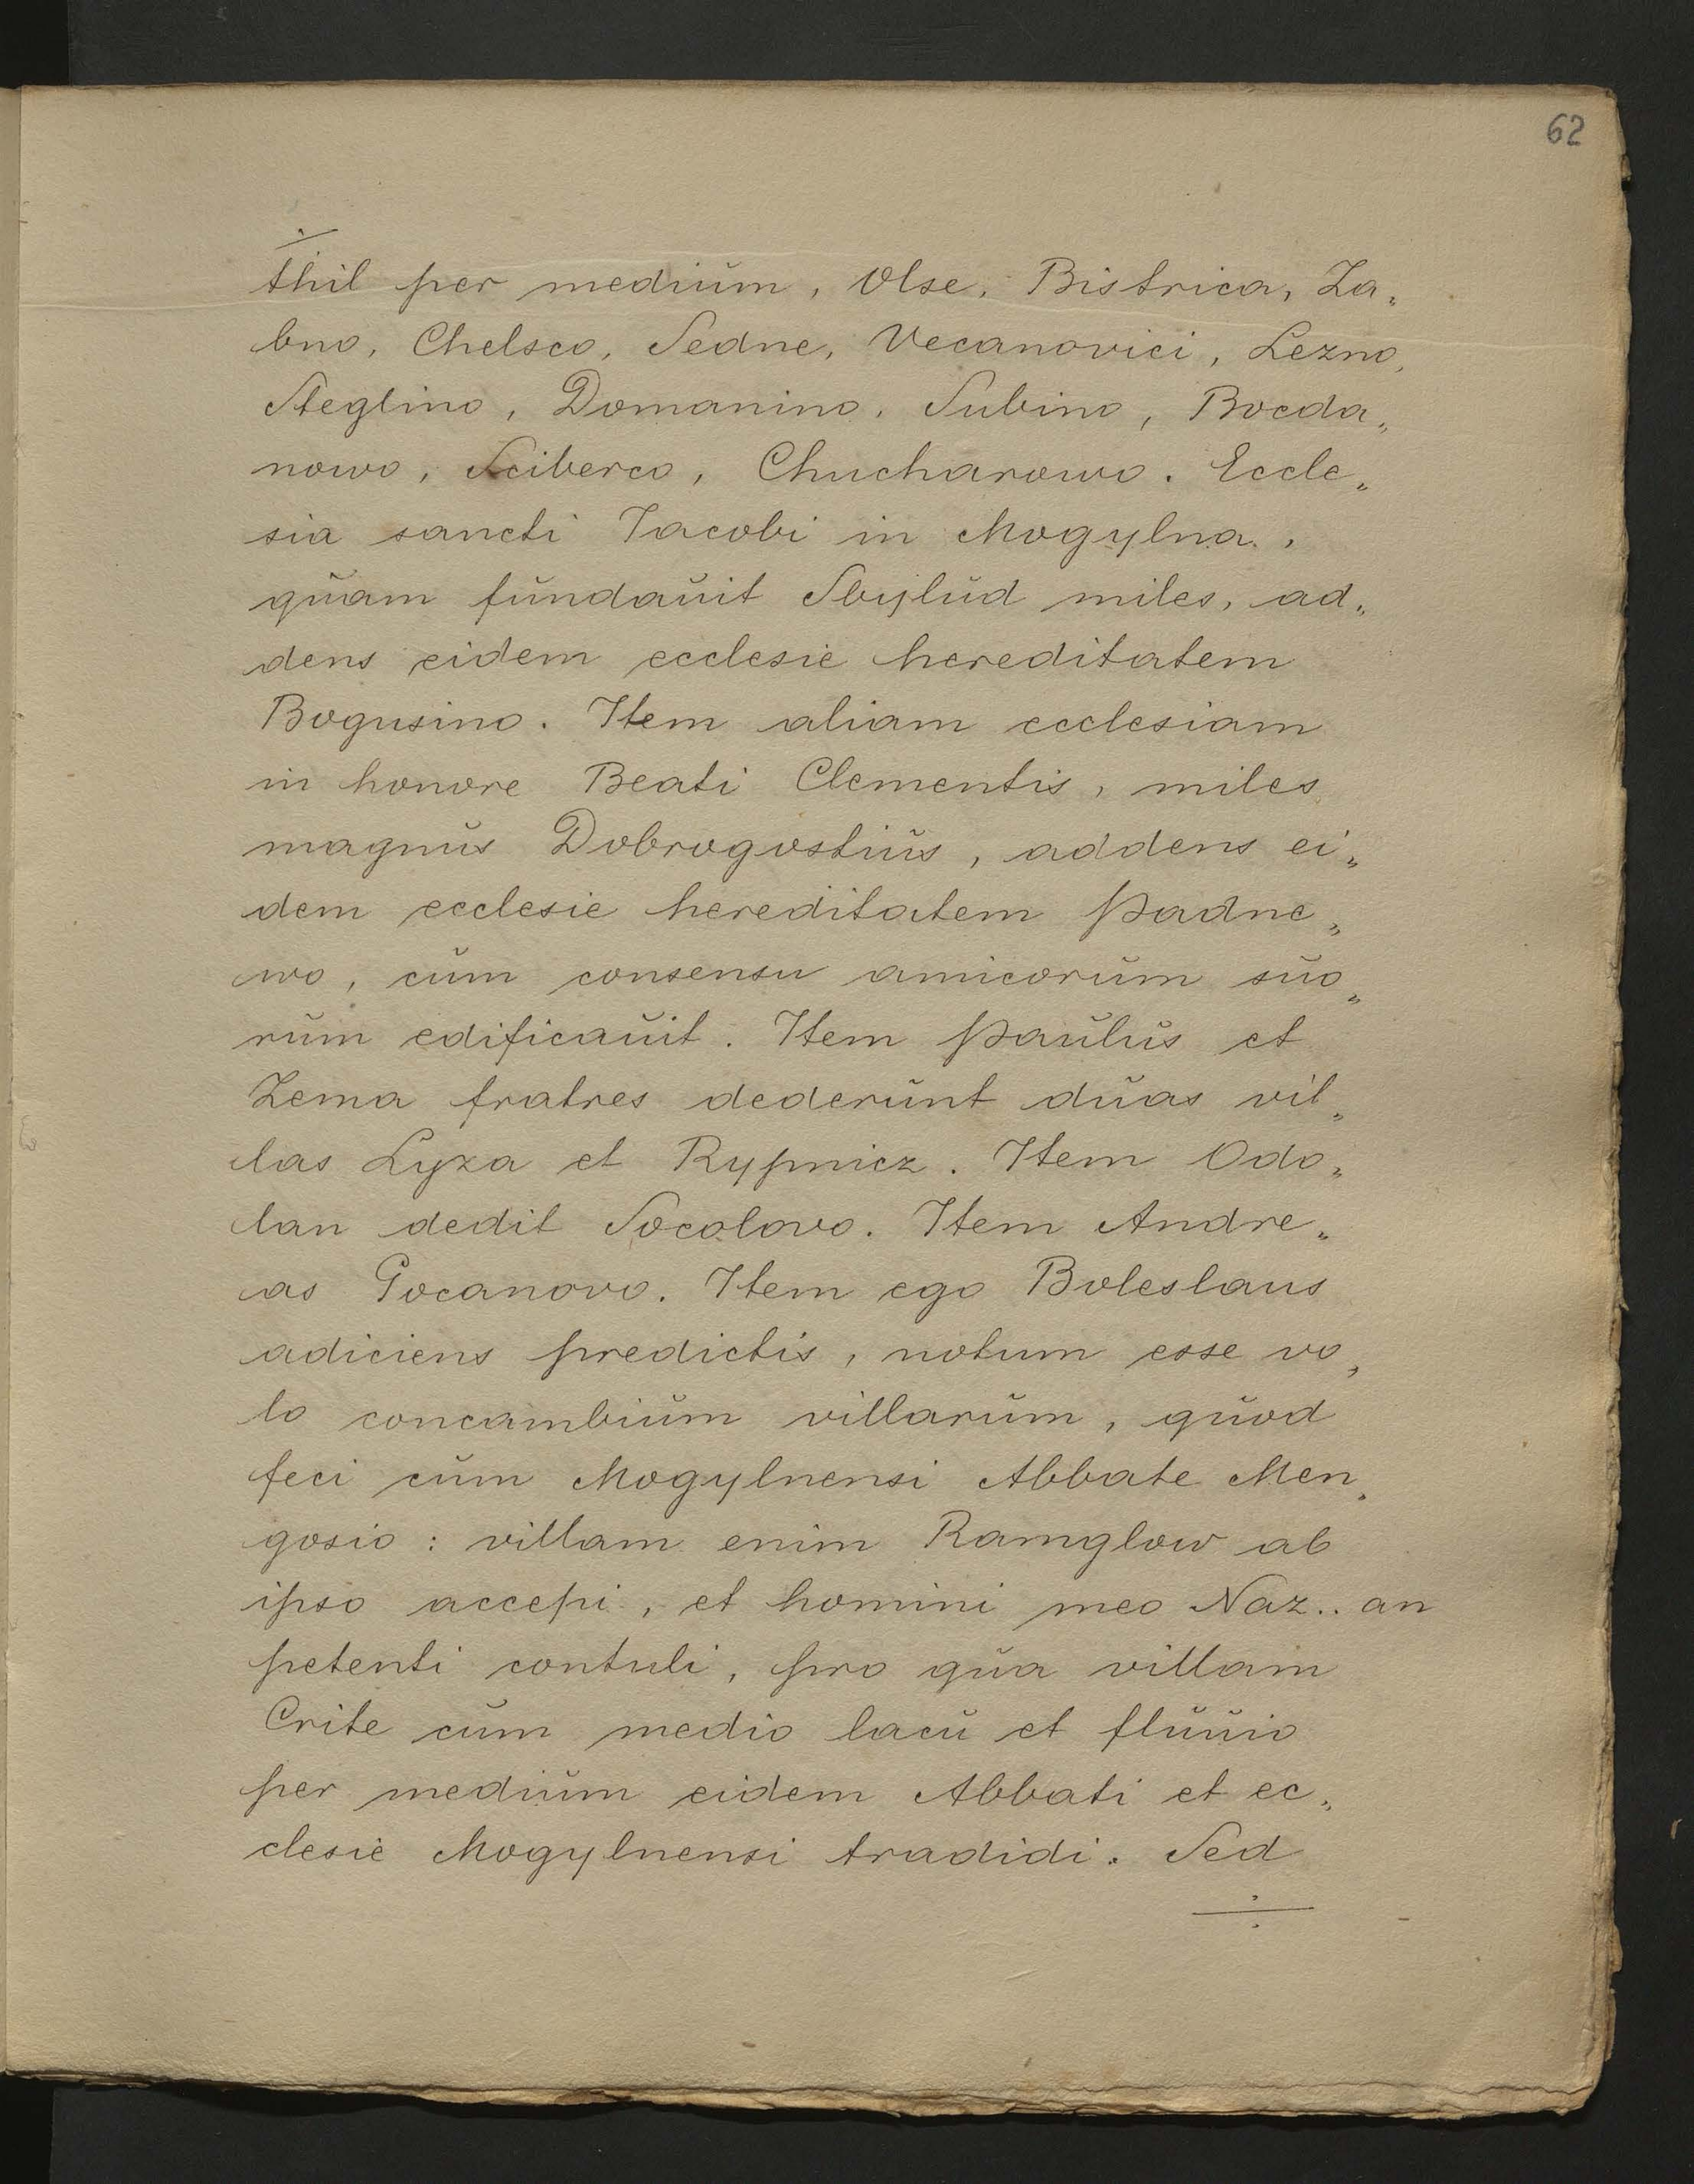 62
thil per medium, Olse, Bistrica, Za„
bno, Chelsco, Sedne, Vecanovici, Lezno,
Steglino, Domanino, Subino, Bocda„
nowo, Sciberco, Chucharowo. Eccle„
sia sancti Iacobi in Mogylna,
quam fundauit Sbylud miles, ad„
dens eidem ecclesie hereditatem
Bogusino. Item aliam ecclesiam
in honore Beati Clementis, miles
magnus Dobrogostius, addens ei„
dem ecclesie hereditatem Padne„
wo, cum consensu amicorum suo„
rum edificauit. Item Paulus et
Zema fratres dederunt duas vil„
las Lyza et Rypnicz. Item Odo„
lan dedit Socolovo. Item Andre„
as Gocanovo. Item ego Boleslaus
adiciens predictis, notum esse vo„
lo concambium villarum, quod
feci cum Mogylnensi Abbate Men„
gosio: villam enim Ramglow ab
ipso accepi, et homini meo Naz.. an
petenti contuli, pro qua villam
Crite cum medio lacu et fluuio
per medium eidem Abbati et ec„
clesie Mogylnensi tradidi. Sed